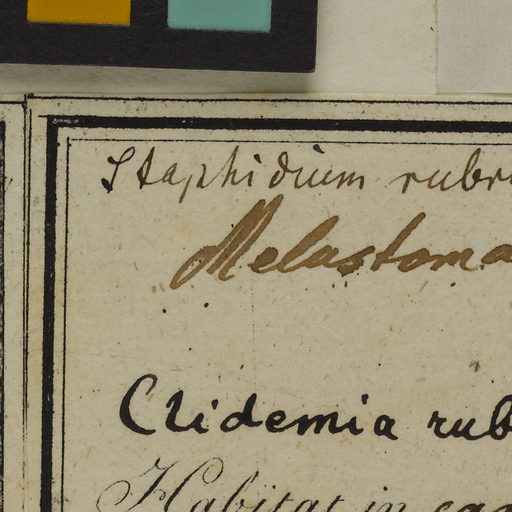 Staphidium rubr
Melastoma
Clidemia rub
Habitat in